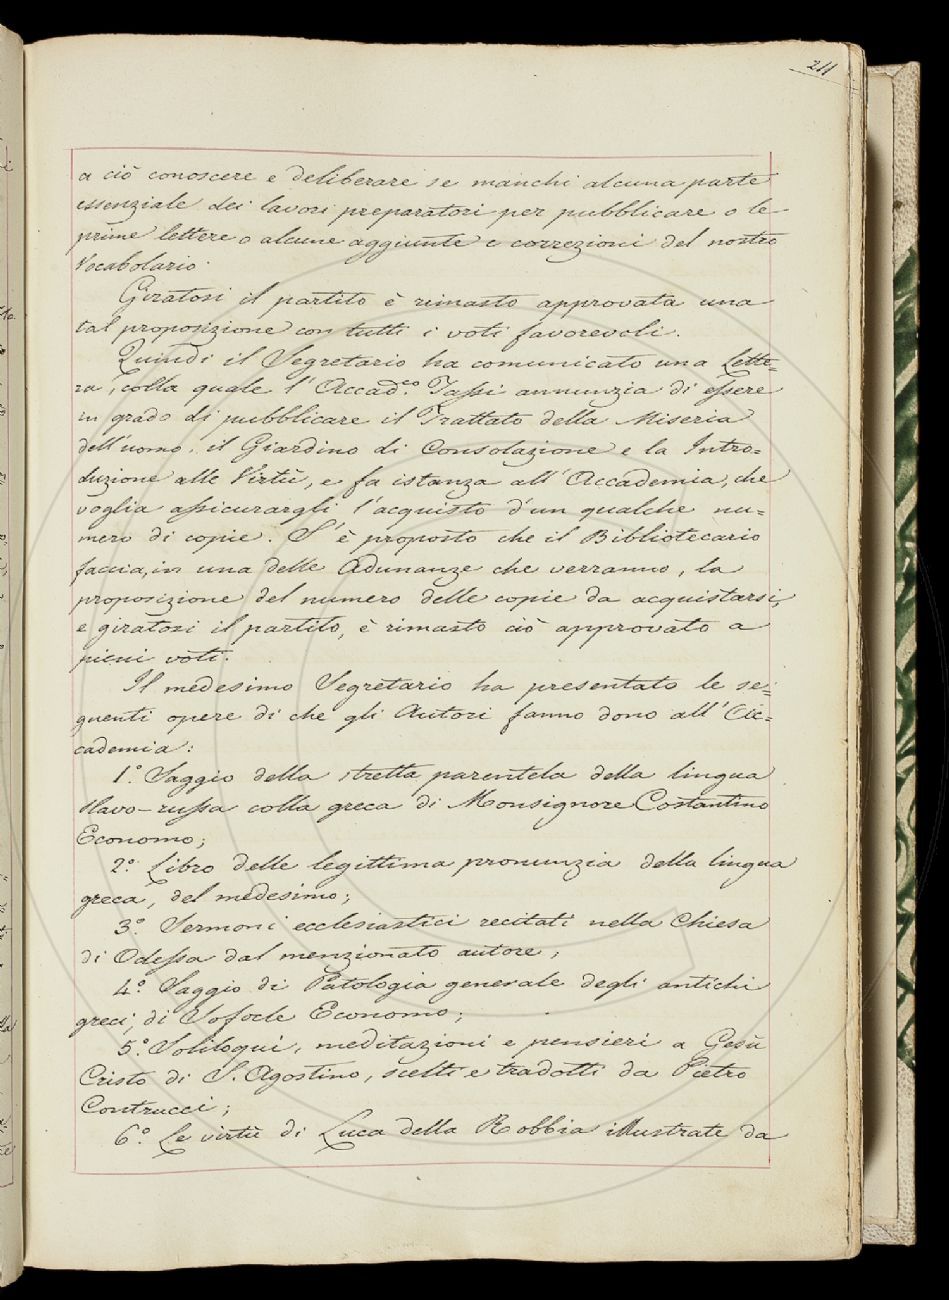 211
a ciò conoscere e deliberare se manchi alcuna parte
essenziale dei lavori preparatori per pubblicare o le
prime lettere o alcune aggiunte e correzioni del nostro
Vocabolario.
Giratosi il partito è rimasto approvata una
tal proposizione con tutti i voti favorevoli.
Quindi il Segretario ha comunicato una Lette=
ra, colla quale l'Accad.co Tassi annunzia di essere
in grado di pubblicare il Trattato della Miseria
dell'uomo, il Giardino di Consolazione e la Intro=
duzione alle Virtù, e fa istanza all'Accademia, che
voglia assicurargli l'acquisto d'un qualche nu=
mero di copie. S'è proposto che il Bibliotecario
faccia, in una delle Adunanze che verranno, la
proposizione del numero delle copie da acquistarsi,
e giratosi il partito, è rimasto ciò approvato a
pieni voti.
Il medesimo Segretario ha presentato le se=
guenti opere di che gli Autori fanno dono all'Ac=
cademia:
1.° Saggio della stretta parentela della lingua
slavo-russa colla greca di Monsignore Costantino
Economo;
2.° Libro delle legittima pronunzia della lingua
greca, del medesimo;
3.° Sermoni ecclesiastici recitati nella Chiesa
di Odessa dal menzionato autore;
4.° Saggio di Patologia generale degli antichi
greci, di Sofocle Economo;
5.° Soliloqui, meditazioni e pensieri a Gesù
Cristo di S. Agostino, scelti e tradotti da Pietro
Contrucci;
6.° Le virtù di Luca della Robbia illustrate da